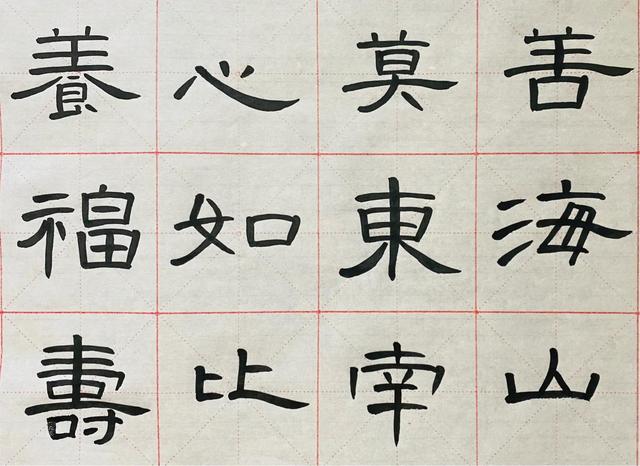 養心莫善
福如東海
壽比南山